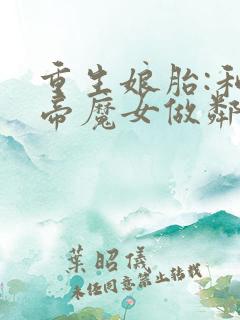 重生娘胎:和
帝魔女做鄰
葉昭儀
未經同意禁止轉載